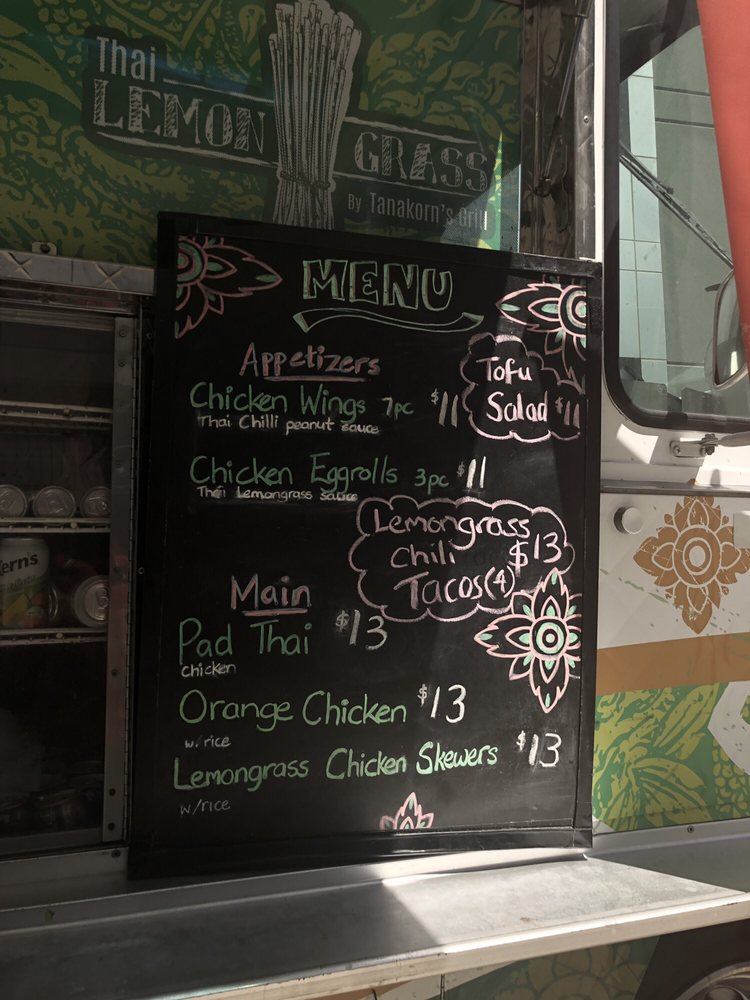 Thai
LEMON GRASS
By Tanakorn's Grill
MENU
Appetizers
Chicken Wings 7pc $11
Thai Chilli peanut sauce
Tofu
Salad $11
Chicken Eggrolls 3pc $11
Thai Lemongrass sauce
Lemongrass
Chili $13
Tacos (4)
Main
Pad Thai $13
chicken
Orange Chicken $13
w/rice
Lemongrass Chicken Skewers $13
w/rice